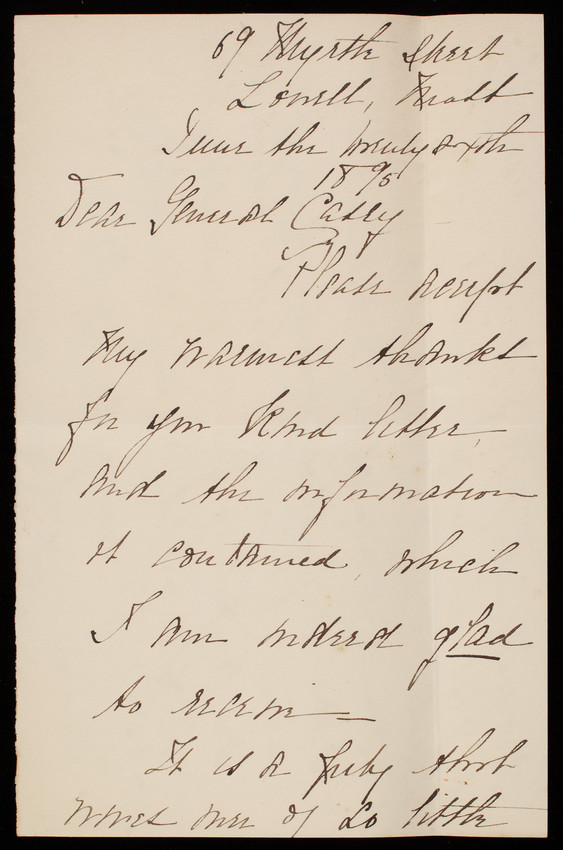 69 Myrtle Street
Lowell, Mass
June the twenty sixth
1895
Dear General Casey
Please accept
my warmest thanks
for your kind letter,
and the information
it contained, which
I am indeed glad
to receive —
It is a pity that
one of so little